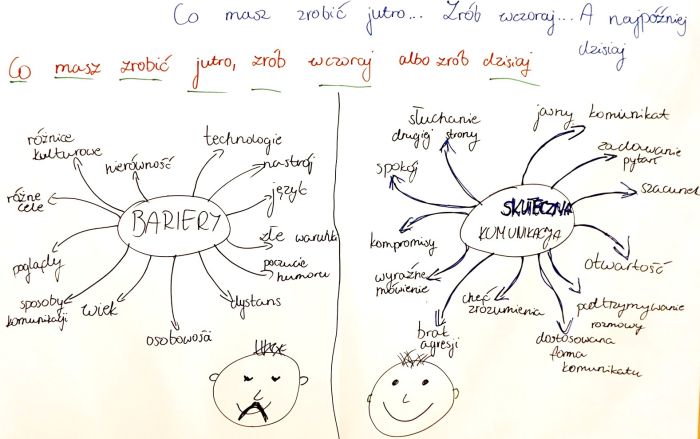 Co masz zrobić jutro... Zrób wczoraj... A najpóźniej
dzisiaj
Co masz zrobić jutro, zrób wczoraj albo zrób dzisiaj
BARIERY
różnice
kulturowe
nierówność
technologie
nastrój
język
złe warunki
poczucie
humoru
dystans
osobowość
wiek
sposoby
komunikacji
poglądy
różne
cele
SKUTECZNA
KOMUNIKACJA
słuchanie
drugiej strony
jasny komunikat
zadawanie
pytań
szacunek
otwartość
podtrzymywanie
rozmowy
dostosowana
forma
komunikatu
chęć
zrozumienia
brak
agresji
wyraźne
mówienie
kompromisy
spokój